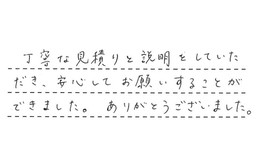 丁寧な見積りと説明をしていた
だき、安心してお願いすることが
できました。 ありがとうございました。